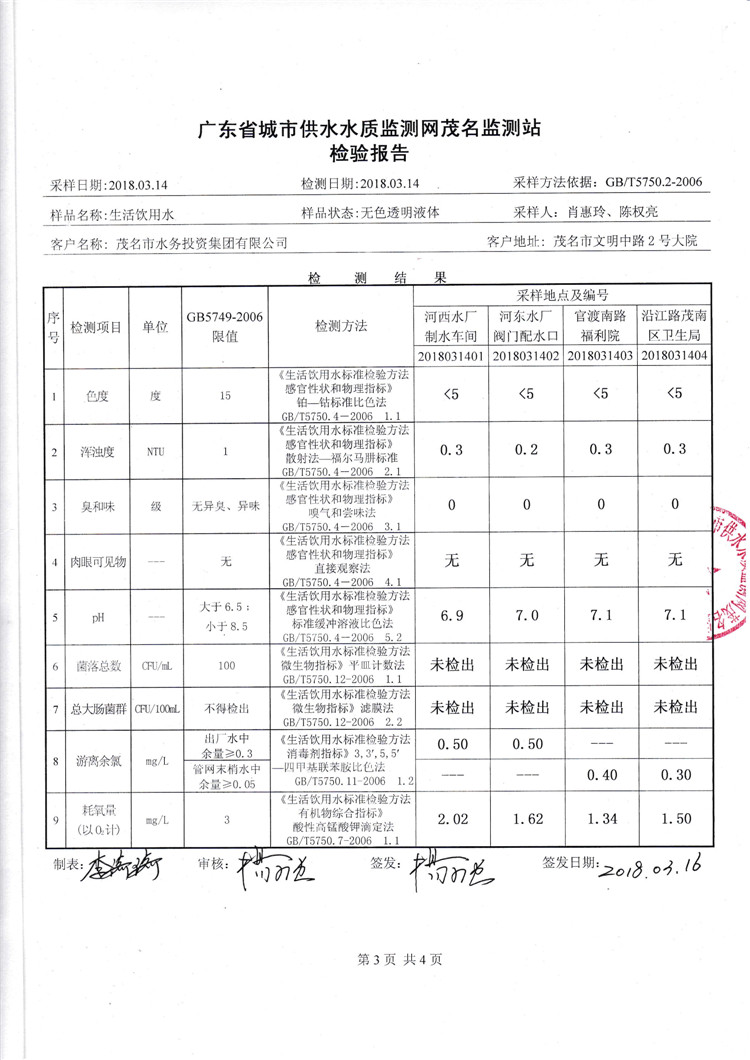 广东省城市供水水质监测网茂名监测站
检验报告
采样日期:2018.03.14 检测日期:2018.03.14 采样方法依据: GB/T5750.2-2006
样品名称:生活饮用水 样品状态:无色透明液体 采样人: 肖惠玲、陈权亮
客户名称: 茂名市水务投资集团有限公司 客户地址: 茂名市文明中路2号大院
检 测 结 果
序号 检测项目 单位 GB5749-2006 限值 检测方法 采样地点及编号
河西水厂制水车间 河东水厂阀门配水口 官渡南路福利院 沿江路茂南区卫生局
2018031401 2018031402 2018031403 2018031404
1 色度 度 15 《生活饮用水标准检验方法感官性状和物理指标》铂—钴标准比色法 GB/T5750.4-2006 1.1 <5 <5 <5 <5
2 浑浊度 NTU 1 《生活饮用水标准检验方法感官性状和物理指标》散射法—福尔马肼标准 GB/T5750.4-2006 2.1 0.3 0.2 0.3 0.3
3 臭和味 级 无异臭、异味 《生活饮用水标准检验方法感官性状和物理指标》嗅气和尝味法 GB/T5750.4-2006 3.1 0 0 0 0
4 肉眼可见物 --- 无 《生活饮用水标准检验方法感官性状和物理指标》直接观察法 GB/T5750.4-2006 4.1 无 无 无 无
5 pH --- 大于6.5; 小于8.5 《生活饮用水标准检验方法感官性状和物理指标》标准缓冲溶液比色法 GB/T5750.4-2006 5.2 6.9 7.0 7.1 7.1
6 菌落总数 CFU/mL 100 《生活饮用水标准检验方法微生物指标》平皿计数法 GB/T5750.12-2006 1.1 未检出 未检出 未检出 未检出
7 总大肠菌群 CFU/100mL 不得检出 《生活饮用水标准检验方法微生物指标》滤膜法 GB/T5750.12-2006 2.2 未检出 未检出 未检出 未检出
8 游离余氯 mg/L 出厂水中余量≥0.3 《生活饮用水标准检验方法消毒剂指标》3,3',5,5'—四甲基联苯胺比色法 GB/T5750.11-2006 1.2 0.50 0.50 --- ---
管网末梢水中余量≥0.05 --- --- 0.40 0.30
9 耗氧量(以O₂计) mg/L 3 《生活饮用水标准检验方法有机物综合指标》酸性高锰酸钾滴定法 GB/T5750.7-2006 1.1 2.02 1.62 1.34 1.50
制表: 审核: 签发: 签发日期: 2018.03.16
第3页 共4页